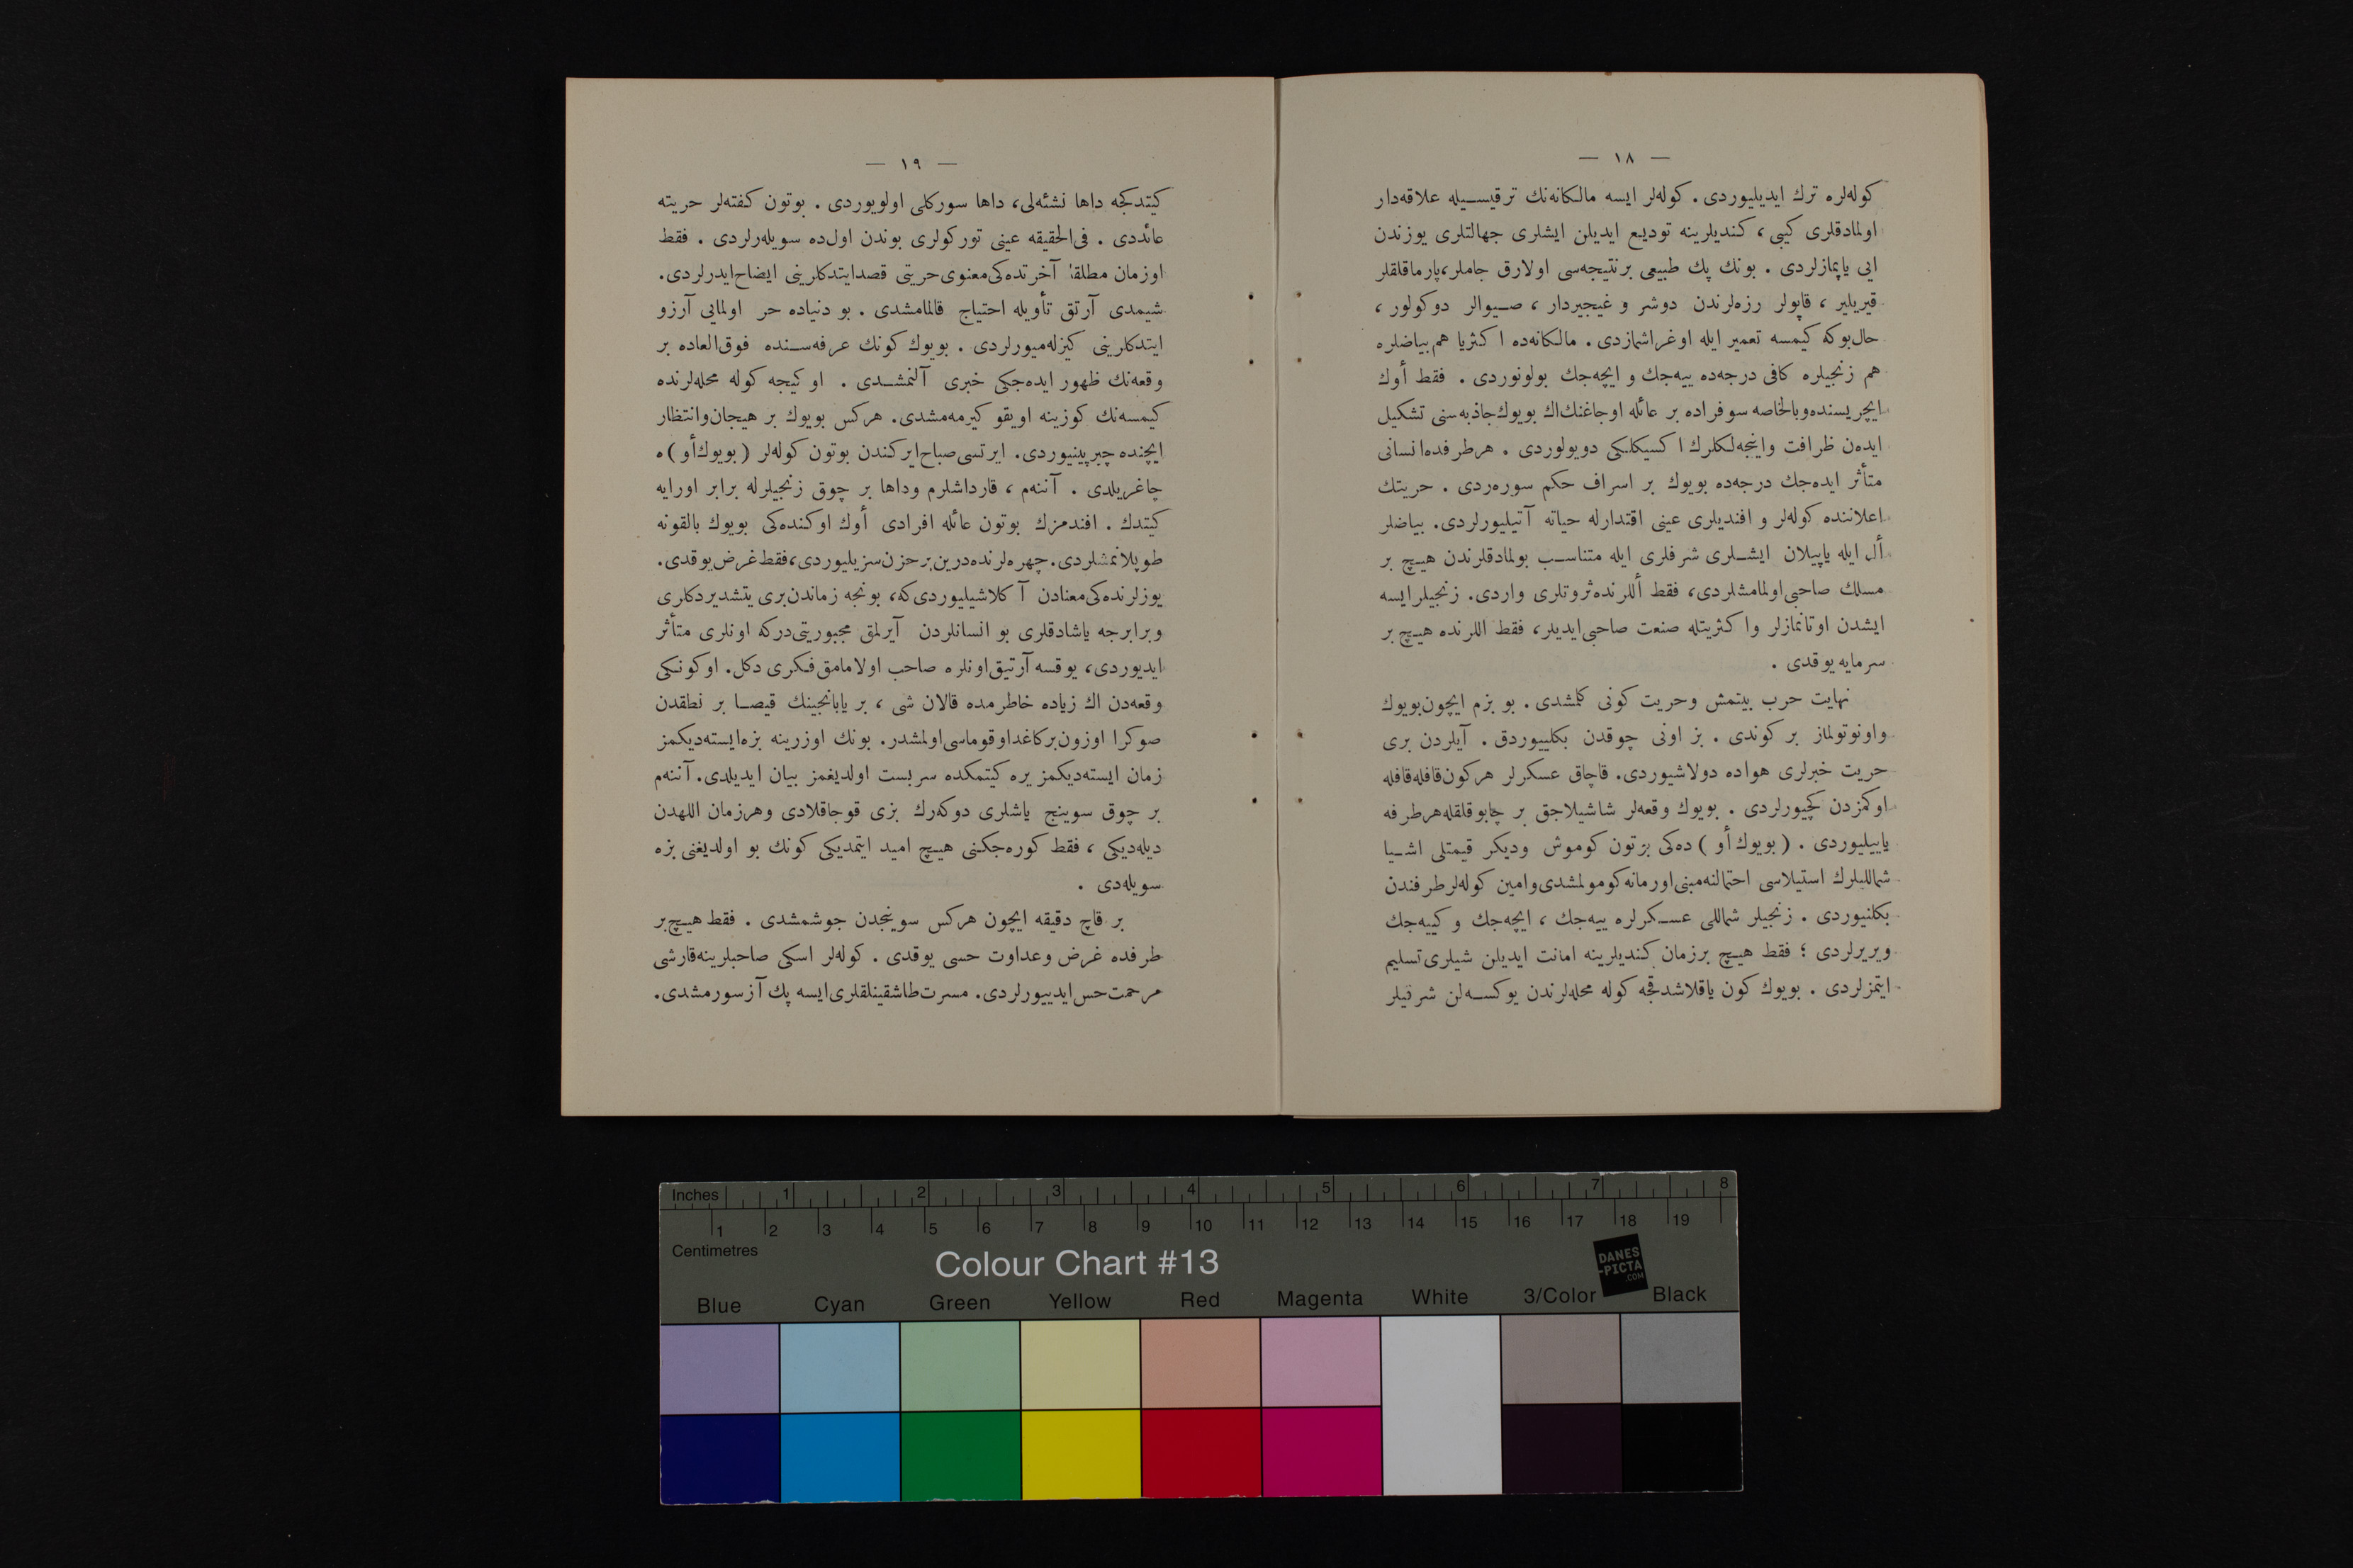 — ١٨ —
كوله‌لره ترك ايديليوردى. كوله‌لر ايسه مالكانه‌نك ترقيسيله علاقه‌دار
اولمادقلرى كيبى، كنديلرينه توديع ايديلن ايشلرى جهالتلرى يوزندن
ايى ياپمازلردى. بونك پك طبيعى برنتيجه‌سى اولارق جاملر، پارماقلقلر
قيريلير، قاپولر رزه‌لرندن دوشر و غيجيردار، صيوالر دوكولور،
حال‌بوكه كيمسه تعمير ايله اوغراشمازدى. مالكانه‌ده اكثريا هم بياضلره
هم زنجيلره كافى درجه‌ده ييه‌جك و ايچه‌جك بولونوردى. فقط أوك
ايچريسنده وبالخاصه سوفراده بر عائله اوجاغنك اك بويوك جاذبه‌سنى تشكيل
ايده‌ن ظرافت واينجه‌لكلرك اكسيكلكى دويولوردى. هرطرفده انسانى
متأثر ايده‌جك درجه‌ده بويوك بر اسراف حكم سوره‌ردى. حريتك
اعلاننده كوله‌لر و افنديلرى عينى اقتدارله حياته آتيليورلردى. بياضلر
أل ايله ياپيلان ايشلرى شرفلرى ايله متناسب بولمادقلرندن هيچ بر
مسلك صاحبى اولمامشلردى، فقط أللرنده ثروتلرى واردى. زنجيلر ايسه
ايشدن اوتانمازلر واكثريتله صنعت صاحبى ايديلر، فقط اللرنده هيچ بر
سرمايه يوقدى.
نهايت حرب بيتمش وحريت كونى كلمشدى. بو بزم ايچون بويوك
واونوتولماز بر كوندى. بز اونى چوقدن بكلييوردق. آيلردن برى
حريت خبرلرى هواده دولاشيوردى. قاچاق عسكرلر هركون قافله قافله
اوكمزدن كچيورلردى. بويوك وقعه‌لر شاشيلاجق بر چابوقلقله هرطرفه
ياييليوردى. (بويوك أو) ده‌كى بوتون كوموش وديكر قيمتلى اشيا
شماليلرك استيلاسى احتمالنه مبنى اورمانه كومولمشدى وامين كوله‌لر طرفندن
بكلنيوردى. زنجيلر شماللى عسكرلره ييه‌جك، ايچه‌جك و كييه‌جك
ويريرلردى؛ فقط هيچ برزمان كنديلرينه امانت ايديلن شيلرى تسليم
ايتمزلردى. بويوك كون ياقلاشدقجه كوله محله‌لرندن يوكسه‌لن شرقيلر
— ١٩ —
كيتدكجه داها نشئه‌لى، داها سوركلى اولويوردى. بوتون كفته‌لر حريته
عائددى. فى‌الحقيقه عينى توركولرى بوندن اول‌ده سويله‌رلردى. فقط
اوزمان مطلقا آخرتده‌كى معنوى حريتى قصد ايتدكلرينى ايضاح ايدرلردى.
شيمدى آرتق تأويله احتياج قالمامشدى. بو دنياده حر اولمايى آرزو
ايتدكلرينى كيزله‌ميورلردى. بويوك كونك عرفه‌سنده فوق‌العاده بر
وقعه‌نك ظهور ايده‌جكى خبرى آلنمشدى. او كيجه كوله محله‌لرنده
كيمسه‌نك كوزينه اويقو كيرمه‌مشدى. هركس بويوك بر هيجان وانتظار
ايچنده چيرپينيوردى. ايرتسى صباح ايركندن بوتون كوله‌لر (بويوك أو) ه
چاغريلدى. آننه‌م، قارداشلرم وداها بر چوق زنجيلرله برابر اورايه
كيتدك. افندمزك بوتون عائله افرادى أوك اوكنده‌كى بويوك بالقونه
طوپلانمشلردى. چهره‌لرنده درين برحزن سزيليوردى، فقط غرض يوقدى.
يوزلرنده‌كى معنادن آكلاشيليوردى‌كه، بونجه زماندن‌برى يتشديردكلرى
وبرابرجه ياشادقلرى بو انسانلردن آيرلمق مجبوريتى‌دركه اونلرى متأثر
ايديوردى، يوقسه آرتيق اونلره صاحب اولامامق فكرى دكل. اوكونكى
وقعه‌دن اك زياده خاطرمده قالان شى، بر يابانجينك قيصا بر نطقدن
صوكرا اوزون بركاغد اوقوماسى اولمشدر. بونك اوزرينه بزه ايسته‌ديكمز
زمان ايسته‌ديكمز يره كيتمكده سربست اولديغمز بيان ايديلدى. آننه‌م
بر چوق سوينج ياشلرى دوكه‌رك بزى قوجاقلادى وهرزمان اللهدن
ديله‌ديكى، فقط كوره‌جكنى هيچ اميد ايتمديكى كونك بو اولديغنى بزه
سويله‌دى.
بر قاچ دقيقه ايچون هركس سوينجدن جوشمشدى. فقط هيچ‌بر
طرفده غرض وعداوت حسى يوقدى. كوله‌لر اسكى صاحبلرينه قارشى
مرحمت حس ايدييورلردى. مسرت طاشقينلقلرى ايسه پك آز سورمشدى.
Inches 1 2 3 4 5 6 7 8
1 2 3 4 5 6 7 8 9 10 11 12 13 14 15 16 17 18 19
Centimetres
Colour Chart #13
DANES
-PICTA
.COM
Blue Cyan Green Yellow Red Magenta White 3/Color Black